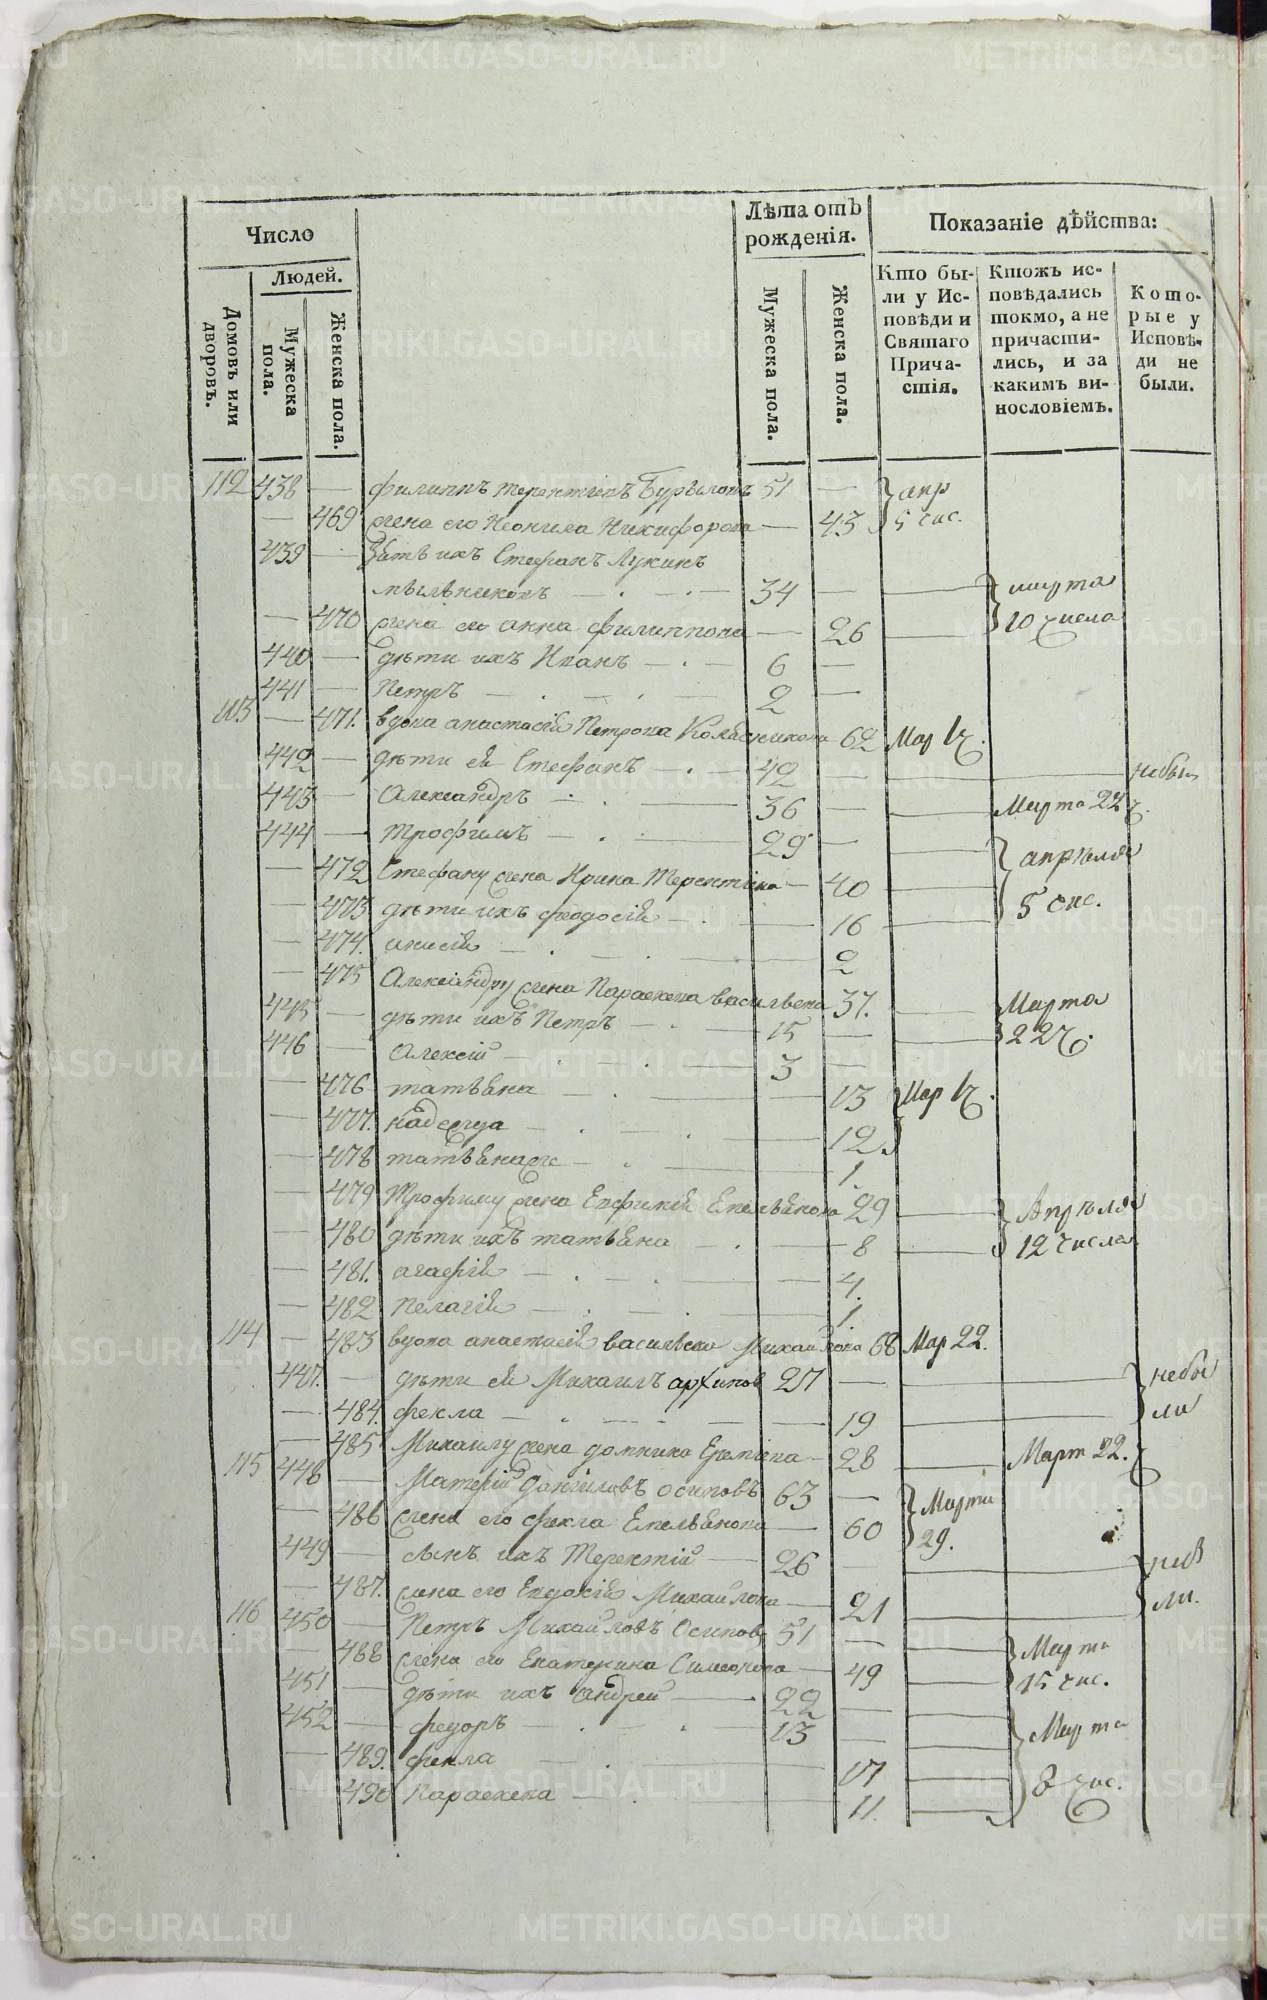 Число
Лѣта отъ рожденія.
Показаніе дѣйства:
Людей.
Домовъ или дворовъ.
Мужеска пола.
Женска пола.
Мужеска пола.
Женска пола.
Кто были у Исповѣди и Святаго Причастія.
Ктожъ исповѣдались токмо, а не причастились, и за какимъ винословіемъ.
Которые у Исповѣди не были.
112 438 — филиппъ терентіевъ 51 — апр
— 469 жена его Неонила Никифорова — 43 5 чис.
439 — Зять ихъ Стефанъ Лукинъ
мыльниковъ — 34 — — марта
— 470 жена ево анна филиппова — 26 — 10 числа
440 — дѣти ихъ Иванъ — 6 —
441 — Петръ — 2 —
113 — 471. вдова анастасія Петрова 62 Мар 1 ч.
442 — дѣти ея Стефанъ — 42 — — небы
443 — Александръ — 36 — — Марта 22 ч.
444 — трофимъ — 29 — — апрѣля
— 472 Стефану жена Ирина Терентіева — 40 — 5 чис.
— 473 дѣти ихъ феодосія — 16 —
— 474. анисія — 2
— 475 Александру жена Параскева васильева 37. — Марта
445 — дѣти ихъ Петръ — 15 — — 22 ч.
446 — Алексій — 3 —
— 476 татьяна — 13 Мар 1 ч.
— 477. надежда — 12
— 478 татьянаже — 1.
— 479 Трофиму жена Евфимія Емельянова 29 — Апрѣля
— 480 дѣти ихъ татьяна — 8 — 12 числа
— 481. агафія — 4.
— 482 Пелагія — 1.
114 — 483 вдова анастасія васильева Михайлова 68 Мар 22.
447. — дѣти ея Михаилъ архипов 27 — — небы
— 484. фекла — 19 — ли
— 485 Михаилу жена домника — 28 — Март 22.
115 448 — даніиловъ осиповъ 63 — Марта
— 486 жена его фекла Емельянова — 60 29.
449 — сынъ ихъ Терентій — 26 —
— 487. жена его Евдокія Михайлова — 21 — ли.
116 450 — Петръ Михайловъ Осипов 51 — — Марта
488 жена ево Екатерина Симеонова — 49 — 15 чис.
451 — дѣти ихъ андрей — 22 —
452 — федоръ — 13 — — Марта
— 489. фекла — 17 — 8 чис.
490 Параскева — 11. —
METRIKI.GASO-URAL.RU